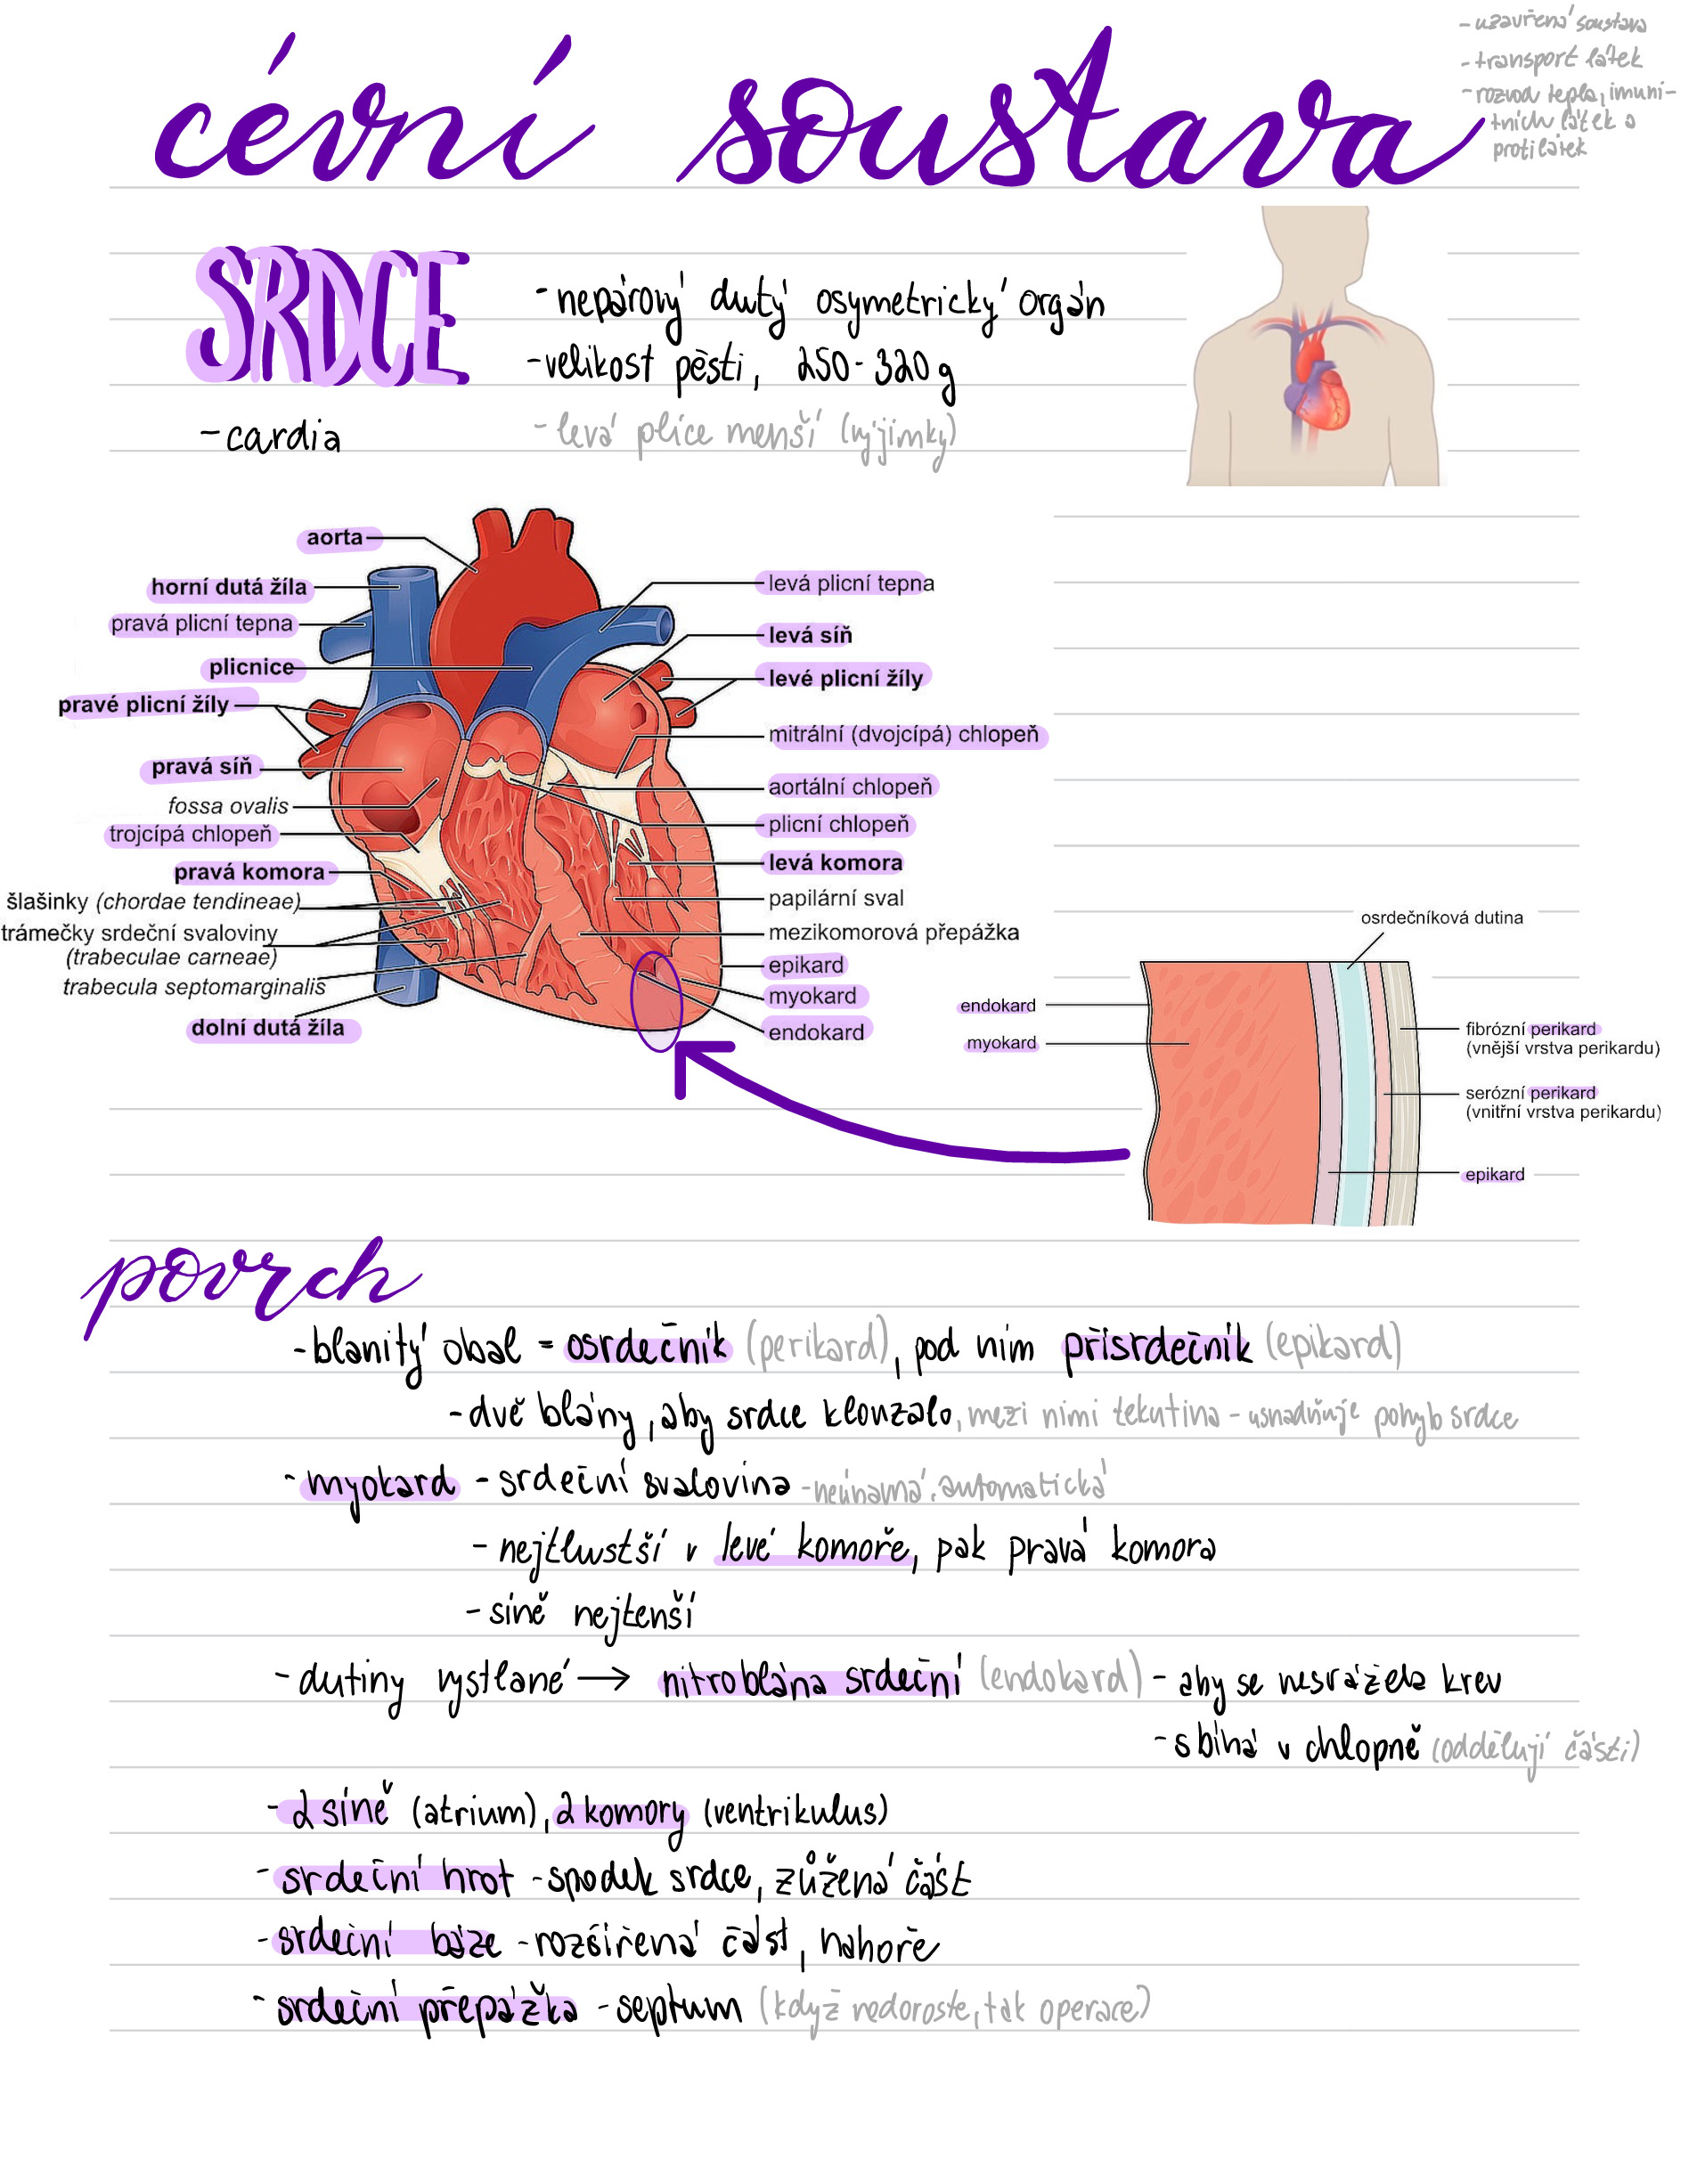 cévní soustava
- uzavřená soustava
- transport látek
- rozvod tepla, imuni-
tních látek a
protilátek
SRDCE
- cardia
- nepárový dutý asymetrický orgán
- velikost pěsti, 250-320g
- levá plíce menší (výjimky)
aorta
horní dutá žíla
pravá plicní tepna
plicnice
pravé plicní žíly
pravá síň
fossa ovalis
trojcípá chlopeň
pravá komora
šlašinky (chordae tendineae)
trámečky srdeční svaloviny
(trabeculae carneae)
trabecula septomarginalis
dolní dutá žíla
levá plicní tepna
levá síň
levé plicní žíly
mitrální (dvojcípá) chlopeň
aortální chlopeň
plicní chlopeň
levá komora
papilární sval
mezikomorová přepážka
epikard
myokard
endokard
osrdečníková dutina
endokard
myokard
fibrózní perikard
(vnější vrstva perikardu)
serózní perikard
(vnitřní vrstva perikardu)
epikard
povrch
- blanitý obal = osrdečník (perikard), pod ním přísrdečník (epikard)
- dvě blány, aby srdce klouzalo, mezi nimi tekutina - usnadňuje pohyb srdce
- myokard - srdeční svalovina - neúnavná, automatická
- nejtlustší v levé komoře, pak pravá komora
- síně nejtenší
- dutiny vystlané → nitroblána srdeční (endokard) - aby se nesrážela krev
- sbíhá v chlopně (oddělují části)
- 2 síně (atrium), 2 komory (ventrikulus)
- srdeční hrot - spodek srdce, zúžená část
- srdeční báze - rozšířená část, nahoře
- srdeční přepážka - septum (když nedoroste, tak operace)